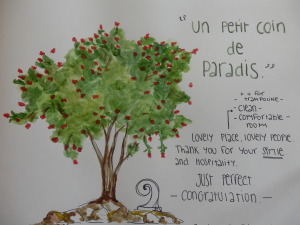 "UN PETIT COIN
de
PARADIS."
++ FOR
TRAMPOLINE -
- CLEAN -
- COMFORTABLE -
ROOMS
LOVELY PLACE, LOVELY PEOPLE
THANK YOU FOR YOUR SMILE
and HOSPITALITY.
JUST PERFECT
- CONGRATULATION -